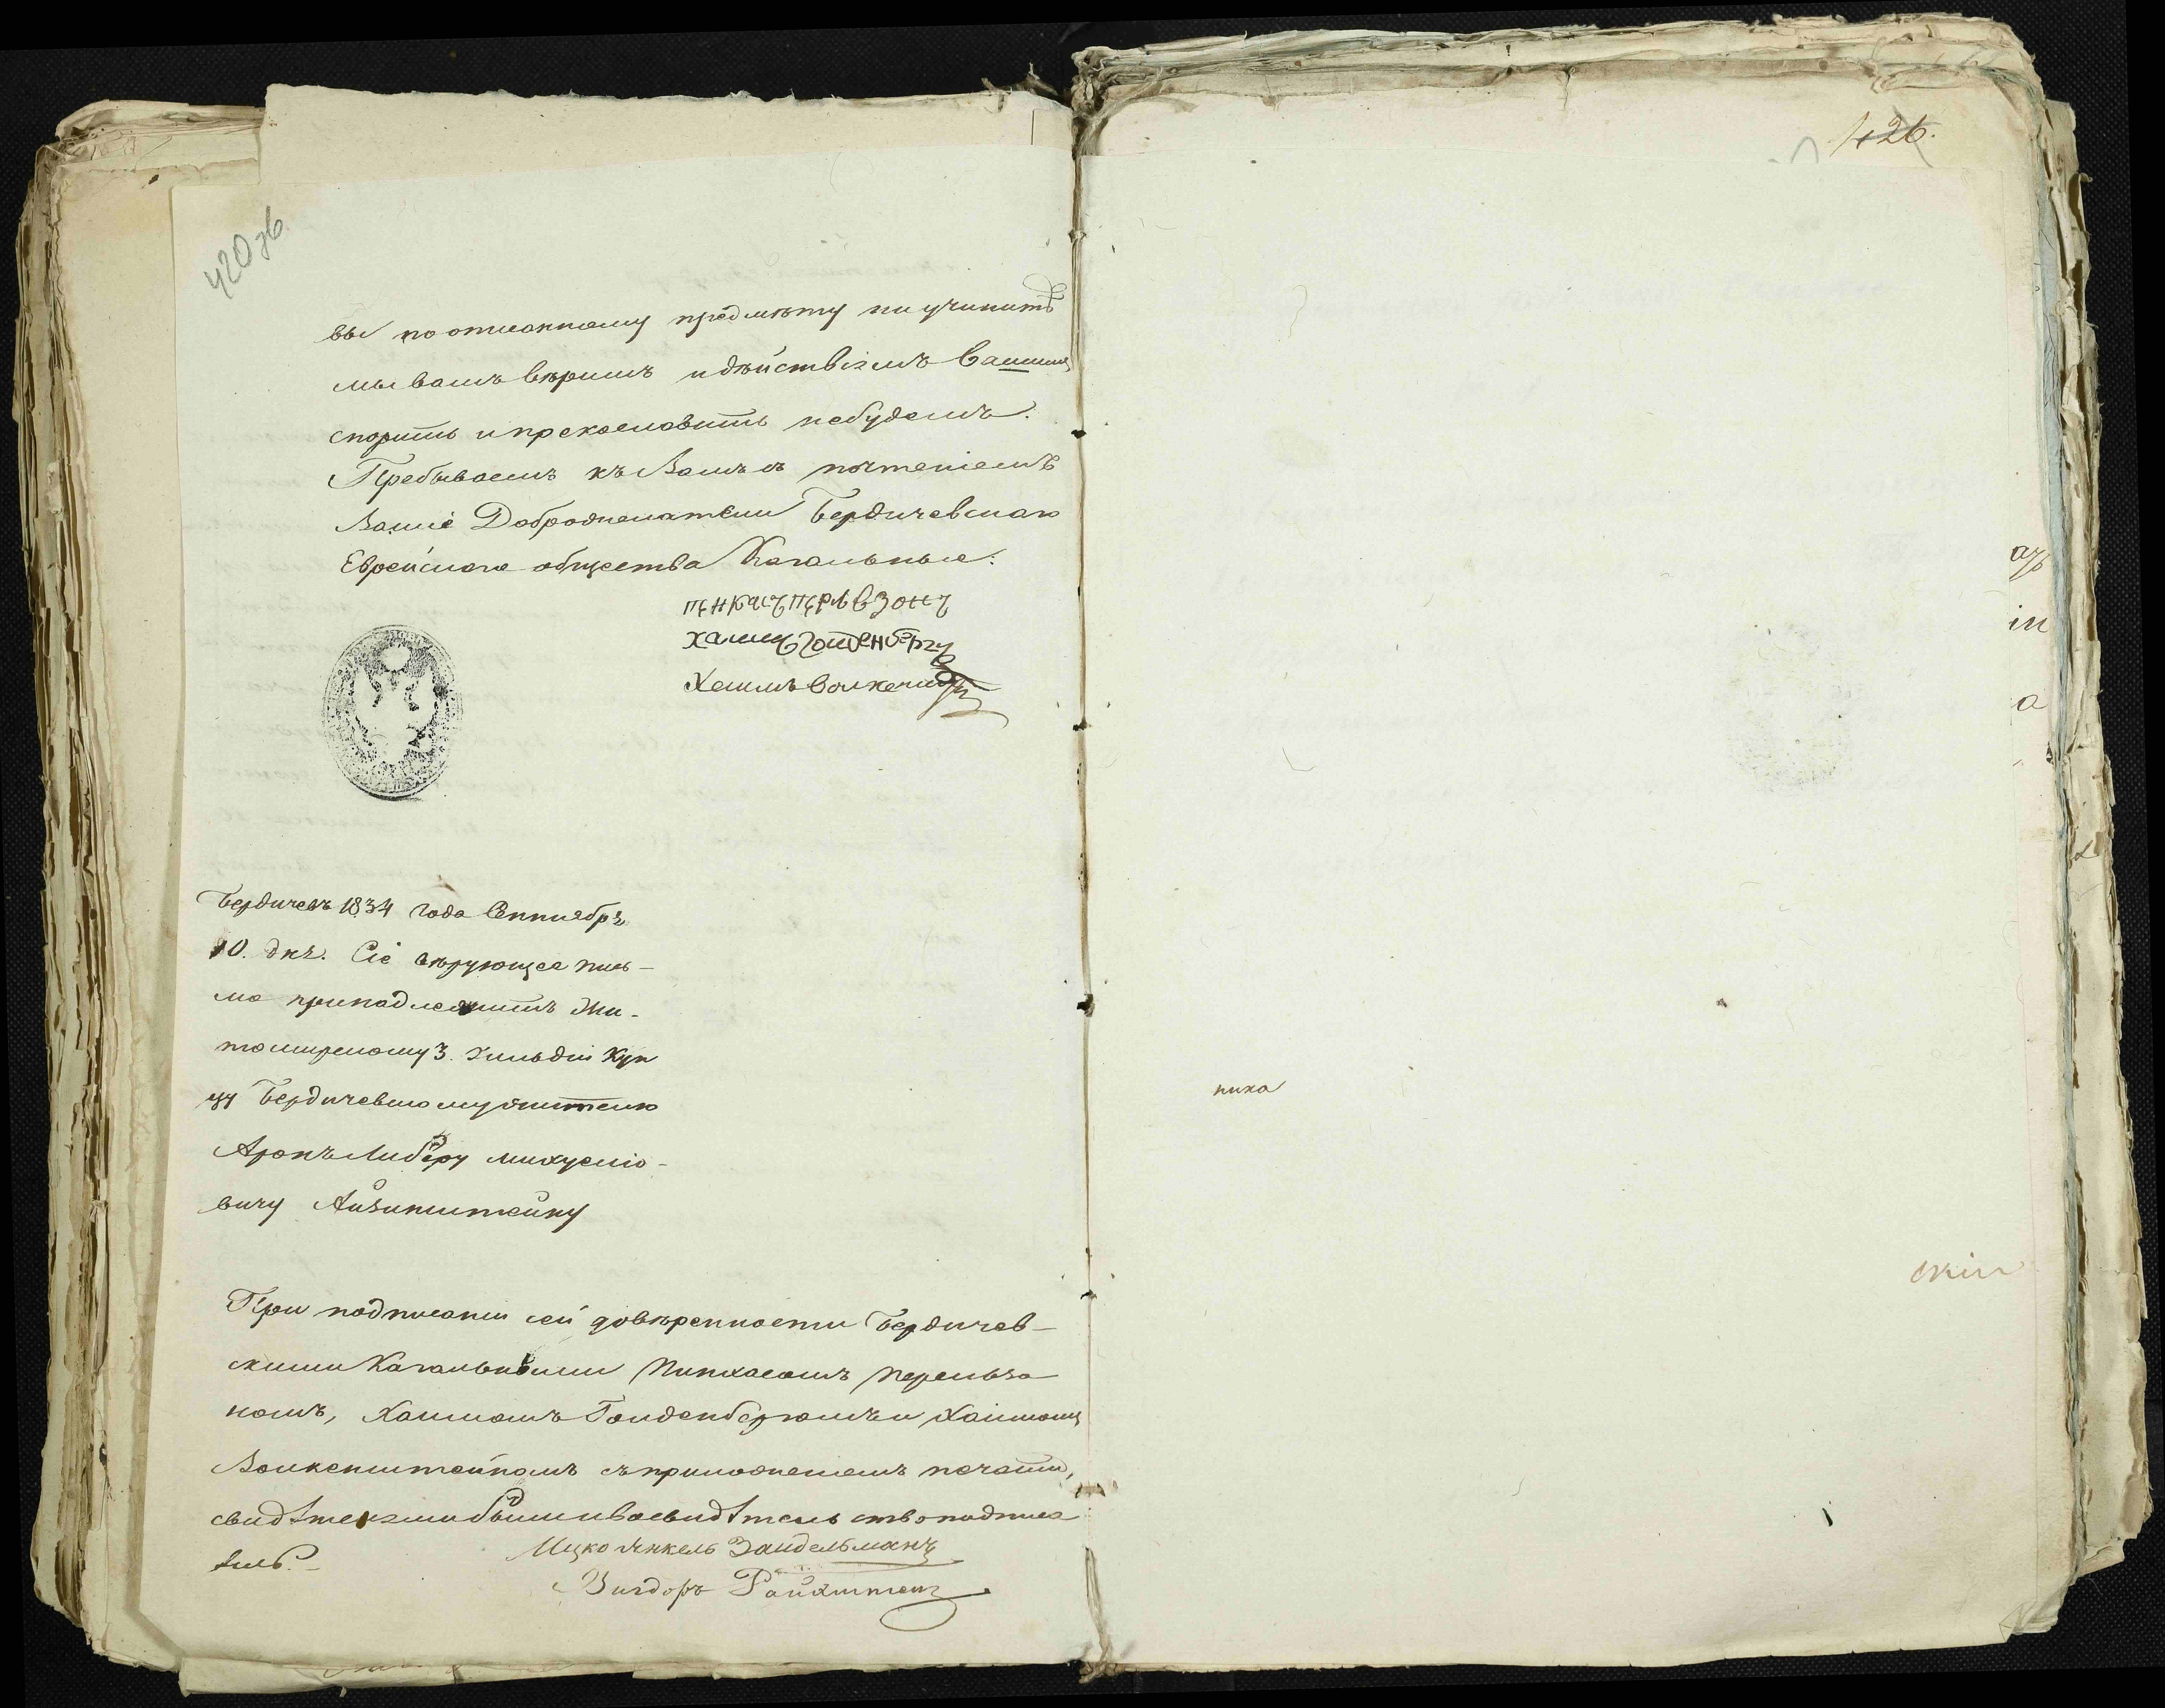 420 об
вы по описанному предмѣту ни учините
мы вамъ вѣримъ и дѣйствіямъ Вашимъ
спорить и прекословить небудемъ.
Пребываемъ къ Вамъ съ почтеніемъ
Вашіе Доброжелатели Бердичевскаго
Еврейскаго общества Кагальные:
Пенкасъ Перлвзонъ
Хаимъ Голденбергъ
Хаимъ
Бердичевъ 1834 года Сентября
10. дня. Сіе вѣрующее пись-
мо принадлежитъ Жи-
томирскому 3. гильдіи Куп
цу Бердичевскому жителю
Аронъ Либеру
вичу Айзинштейну
При подписаніи сей довѣренности Бердичев-
скими Кагальными Пинхасомъ Перельзо
номъ, Хаимомъ Голденбергомъ и Хаимомъ
Волкенштейномъ съ приложеніемъ печати,
свидѣтелями были и во свидѣтельство подписа
лись.-
Ицко Янкель Зандельманъ
Вигдоръ Райхштейн
426.
аго
ін
а
ника
скіи